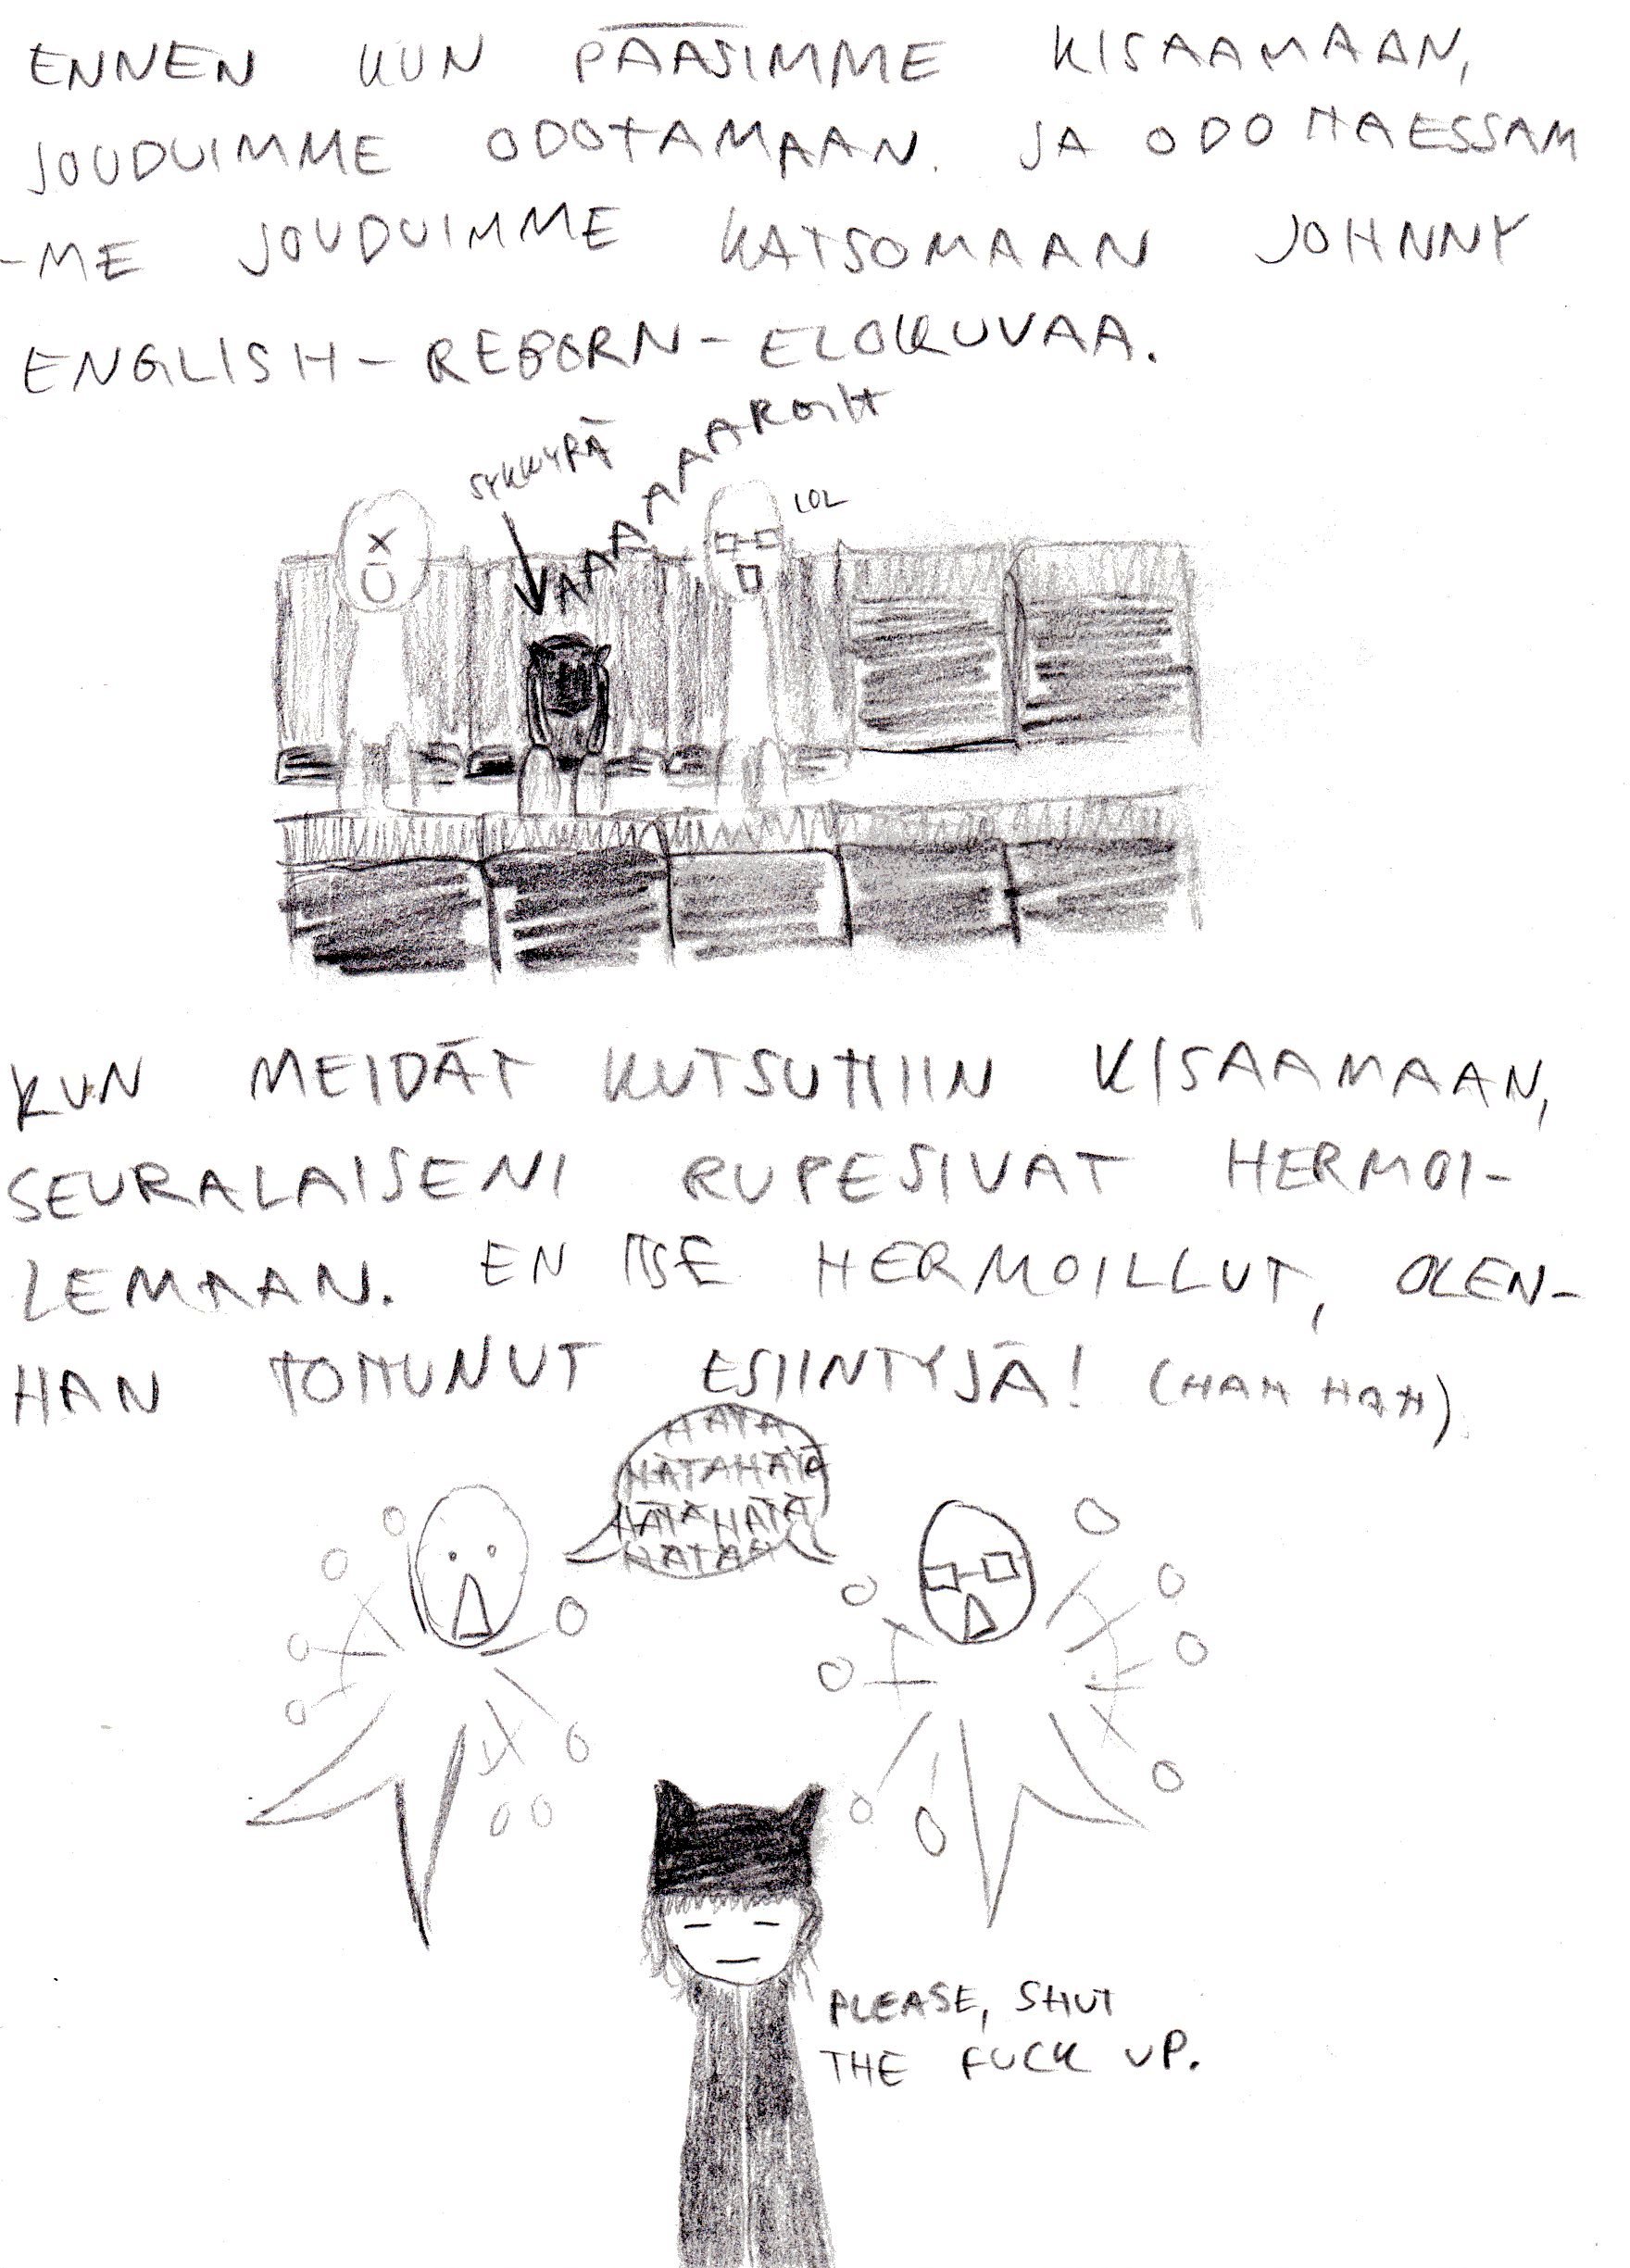 ENNEN KUN PÄÄSIMME KISAAMAAN,
JOUDUIMME ODOTAMAAN. JA ODOTTAESSAM
-ME JOUDUIMME KATSOMAAN JOHNNY
ENGLISH-REBORN-ELOKUVAA.
SYKKYRÄ
AAAAAAAARGHH
LOL
KUN MEIDÄT KUTSUTTIIN KISAAMAAN,
SEURALAISENI RUPESIVAT HERMOI-
LEMAAN. EN ITSE HERMOILLUT, OLEN-
HAN TOTTUNUT ESIINTYJÄ! (HAH HAH)
HÄTÄ
HÄTÄHÄTÄ
HÄTÄHÄTÄ
HÄTÄÄ
PLEASE, SHUT
THE FUCK UP.